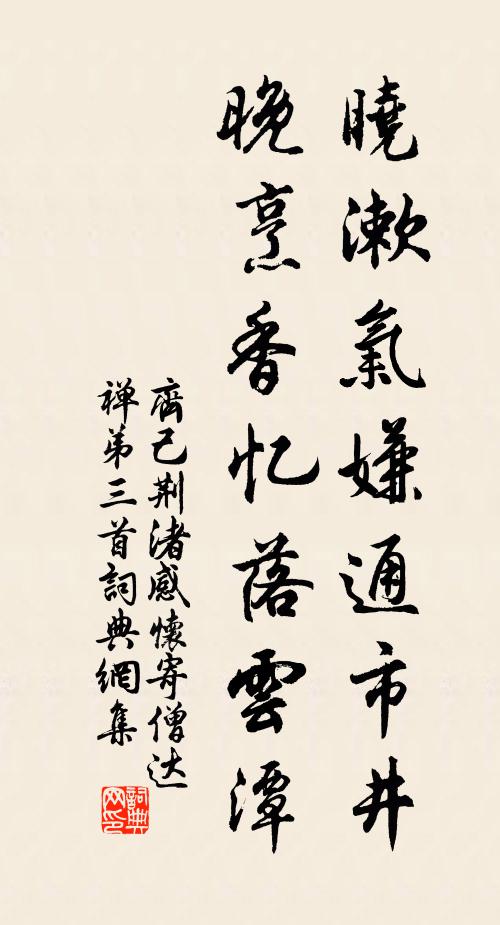 曉漱氣嫌通市井
晚烹香忆落雲潭
齊己荆渚感懷寄僧达
禅弟三首詞典網集
詞典
网印